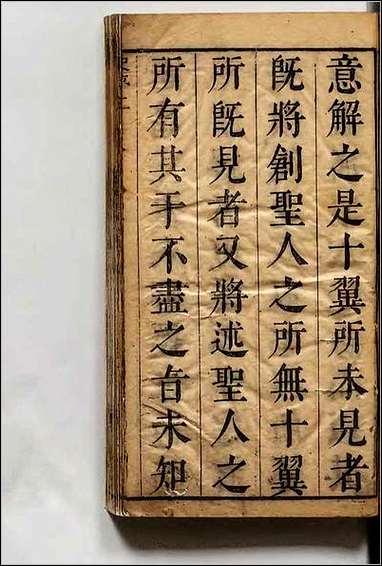 意解之是十翼所未見者
既將創聖人之所無十翼
所既見者又將述聖人之
所有其于不盡之旨未知